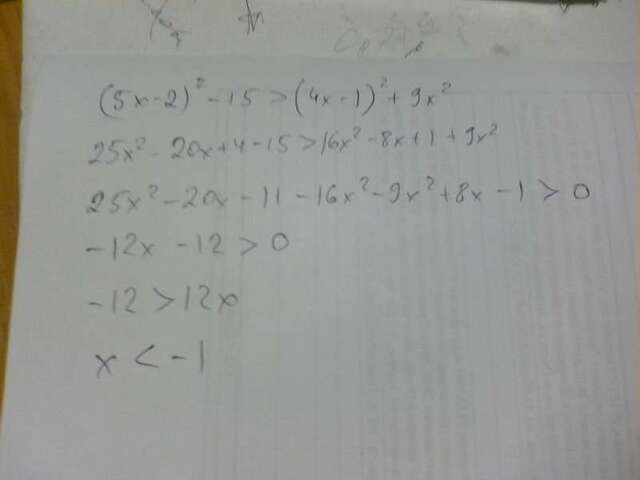 (5x-2)²-15>(4x-1)²+9x²
25x²-20x+4-15>16x²-8x+1+9x²
25x²-20x-11-16x²-9x²+8x-1>0
-12x-12>0
-12>12x
x<-1